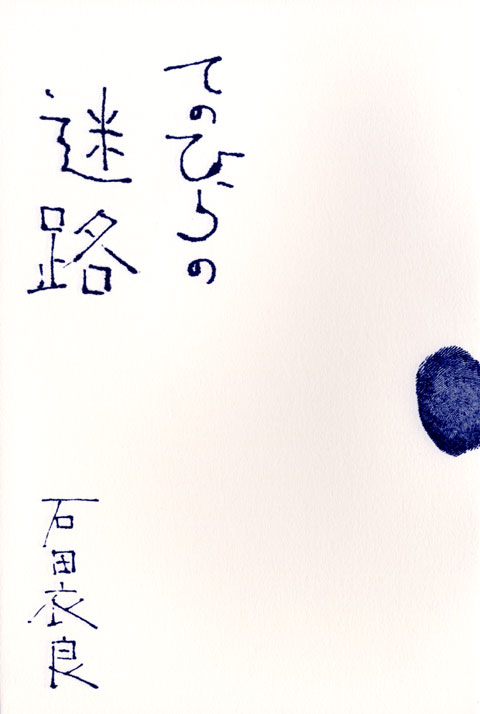 てのひらの
迷路
石田衣良